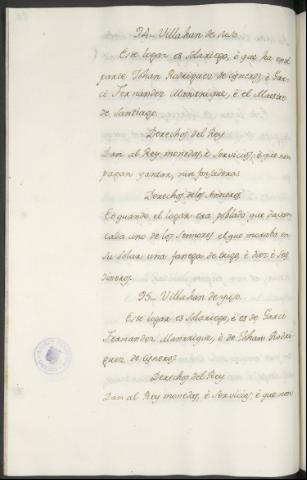 94. Villahan de suso.
Este logar es Solariego, è que ha en el
parte Johan Rodriguez de Cisneros, è Gar-
ci Fernandez Manrrique, è el Maestre
de Santiago.
Derechos del Rey
Dan al Rey monedas, è servicios, è que non
pagan yantar, nin fonsadera:
Derechos de los Sennores
E quando el logar era poblado, que davan
cada uno de los Sennores, el que moraba en
su Solar una fanega de trigo, è diez è seis
dineros:
95. Villahan de yuso.
Este logar es Solariego, è es de Garci
Fernandez Manrrique, è de Johan Rodri-
guez de Cisneros:
Derechos del Rey
Dan al Rey monedas, è Servicios, è que non